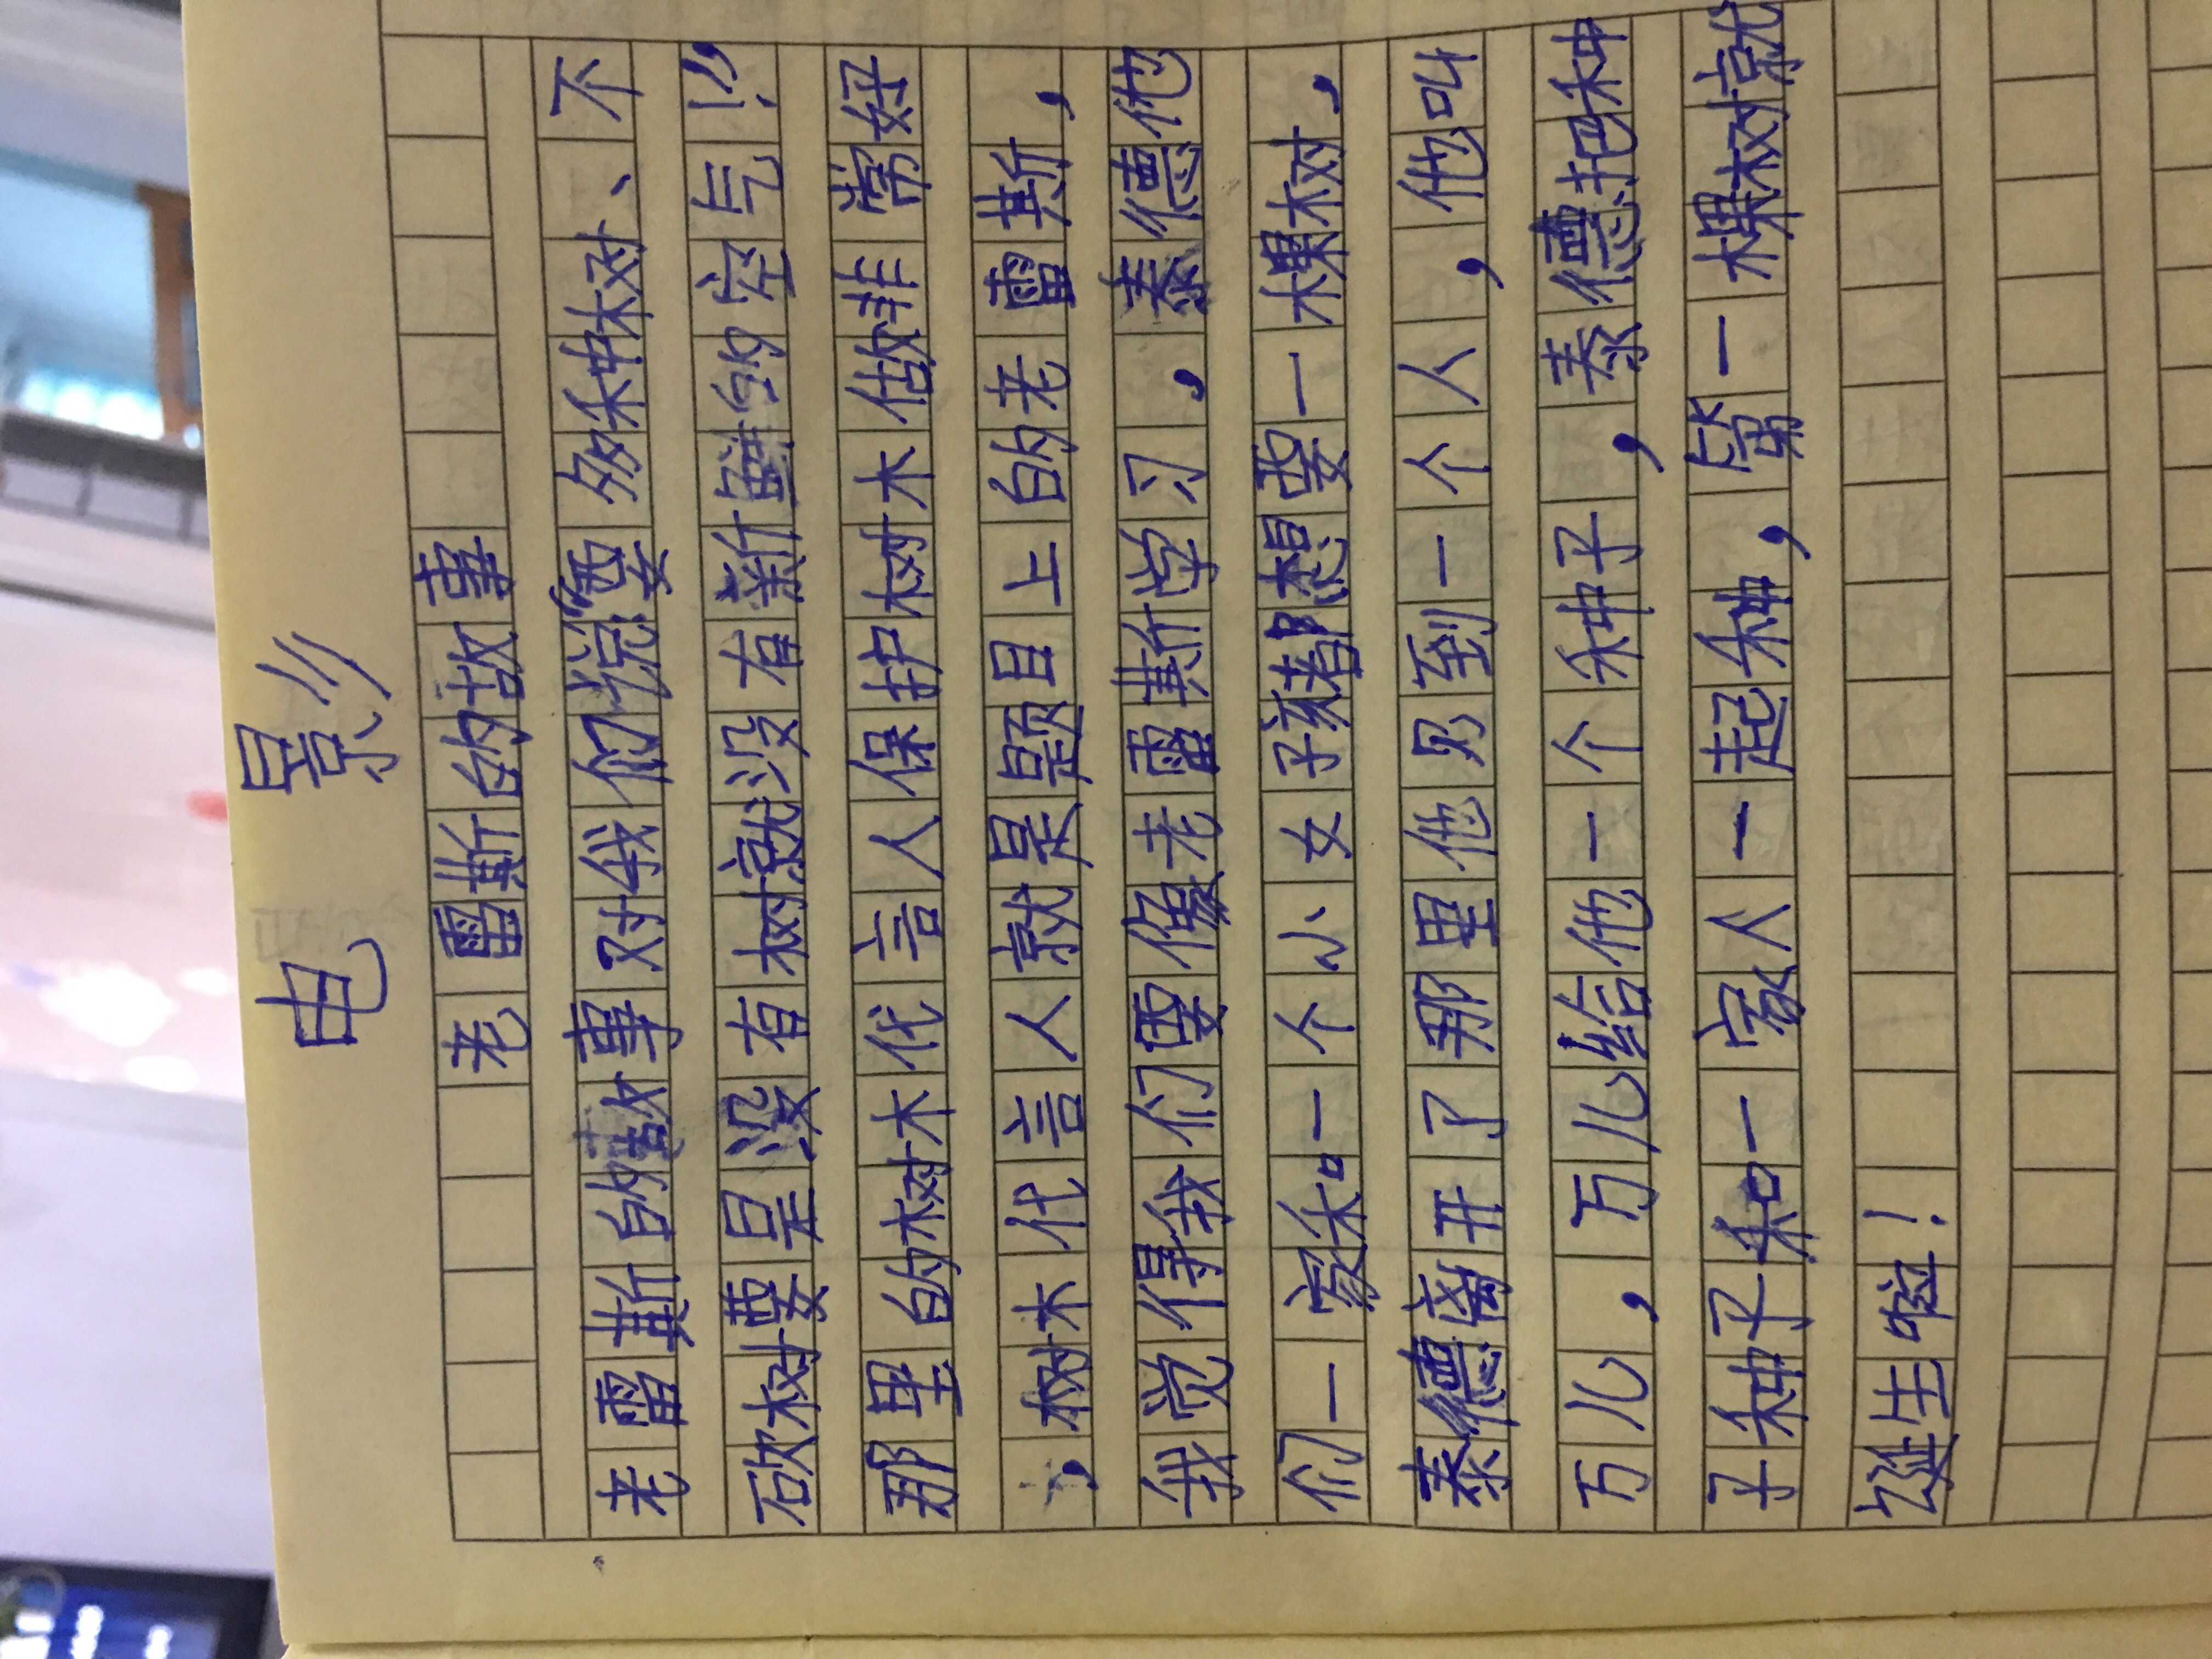 电影
老雷斯的故事
老雷斯的故事对我们说：“要多种树、不
砍树要是没有树就没有新鲜的空气！”
那里的树木代言人保护树木估故非常好
，树木代言人就是题目上的老雷斯，
我觉得我们要像老雷斯学习，泰德他
们一家和一个小女孩都想要一棵树，
泰德离开了那里他见到一个人，他叫
万儿，万儿给他一个种子，泰德把种
子种子和一家人一起种，第一棵树就
诞生啦！